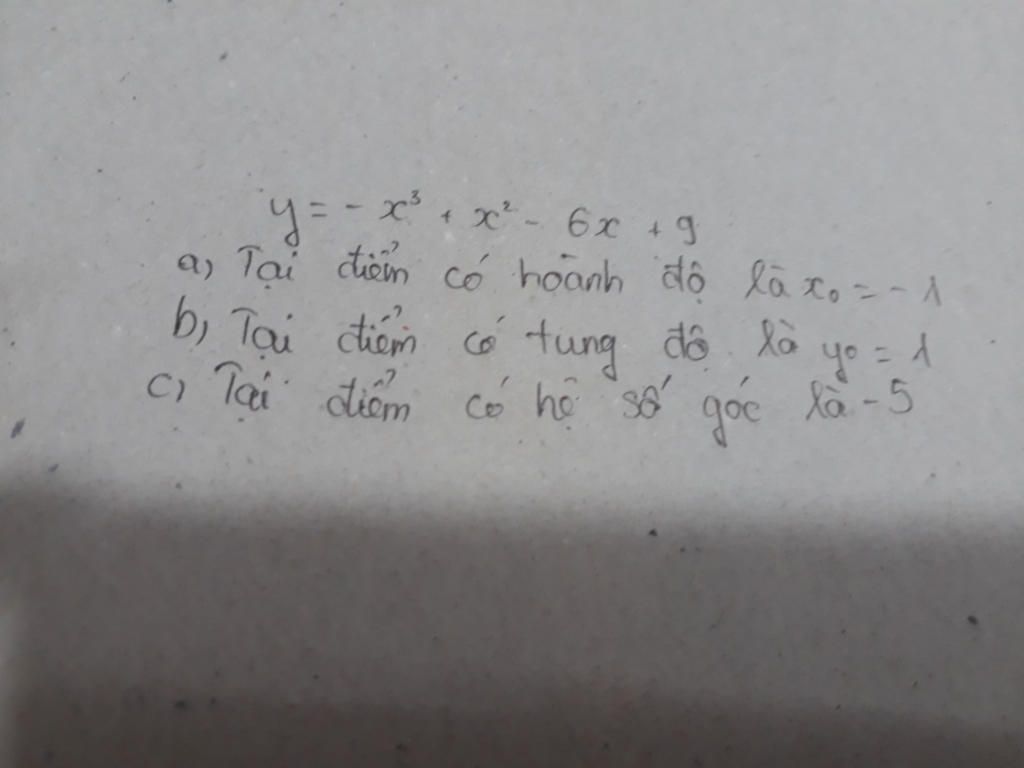 y = - x³ + x² - 6x + 9
a, Tại điểm có hoành độ là x₀ = - 1
b, Tại điểm có tung độ là y₀ = 1
c, Tại điểm có hệ số góc là - 5